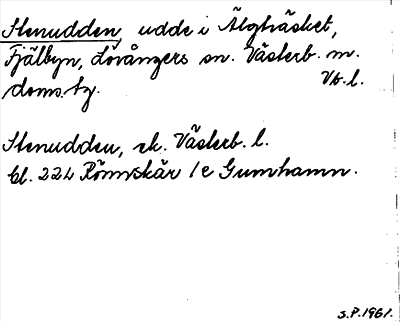 Stenudden, udde i Älgträsket,
Fjälbyn, Lövångers sn. Västerb. m.
doms. tg. Vb. l.
Stenudden, ek. Västerb. l.
bl. 224 Rönnskär 1e Gumhamn.
S.P. 1961.